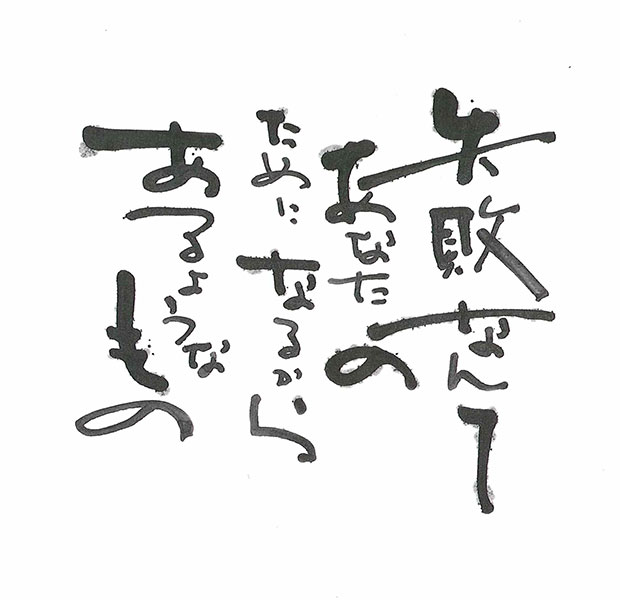 失敗なんて
あなたの
ために なるから
あるような
もの